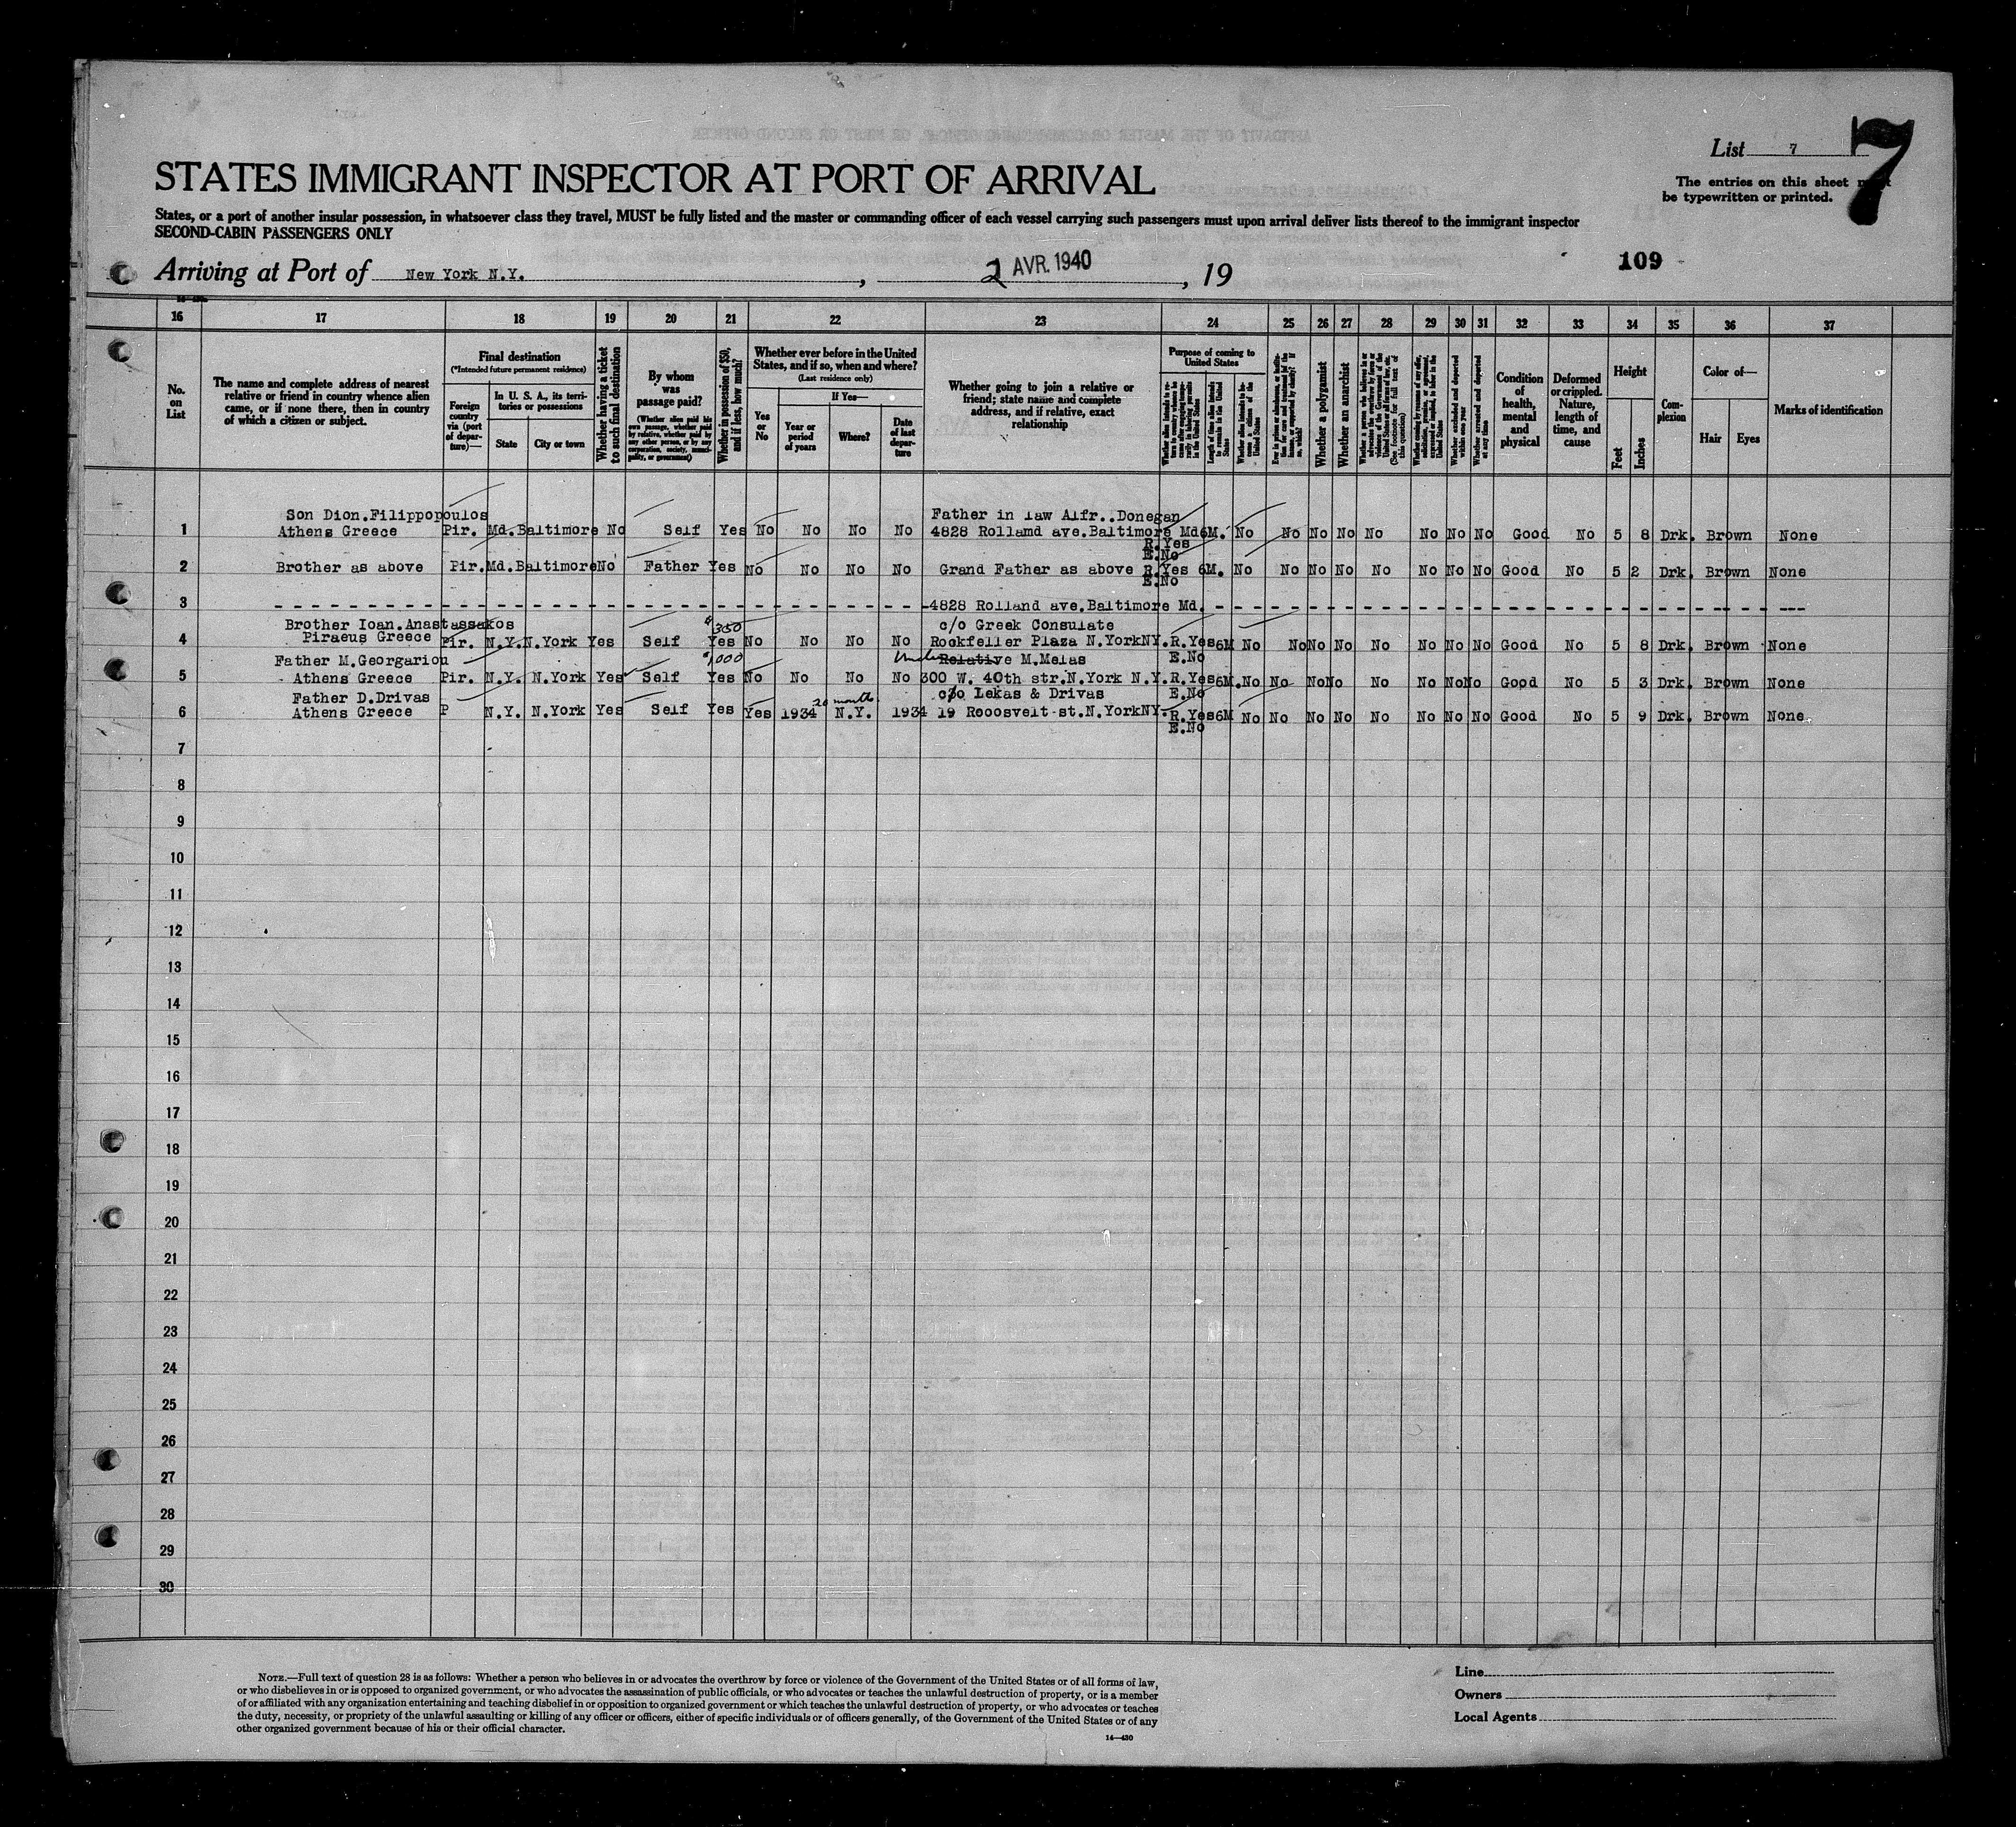 List 7
7
The entries on this sheet must
be typewritten or printed.
STATES IMMIGRANT INSPECTOR AT PORT OF ARRIVAL
States, or a port of another insular possession, in whatsoever class they travel, MUST be fully listed and the master or commanding officer of each vessel carrying such passengers must upon arrival deliver lists thereof to the immigrant inspector
SECOND-CABIN PASSENGERS ONLY
Arriving at Port of New York N.Y. , 2 AVR. 1940 , 19
109
16 17 18 19 20 21 22 23 24 25 26 27 28 29 30 31 32 33 34 35 36 37
No. on List
The name and complete address of nearest
relative or friend in country whence alien
came, or if none there, then in country
of which a citizen or subject.
Final destination
(*Intended future permanent residence)
Foreign country via (port of departure)—
In U. S. A., its territories or possessions
State
City or town
Whether having a ticket to such final destination
By whom was passage paid?
(Whether alien paid his own passage, whether paid by relative, whether paid by any other person, or by any corporation, society, municipality, or government)
Whether in possession of $50, and if less, how much?
Whether ever before in the United States, and if so, when and where?
(Last residence only)
Yes or No
If Yes—
Year or period of years
Where?
Date of last departure
Whether going to join a relative or
friend; state name and complete
address, and if relative, exact
relationship
Purpose of coming to United States
Length of time alien intends to remain in the United States
Whether a polygamist
Whether an anarchist
(See footnote for full text of this question)
Whether arrested and deported at any time
Condition of health, mental and physical
Deformed or crippled. Nature, length of time, and cause
Height
Feet
Inches
Complexion
Color of—
Hair
Eyes
Marks of identification
Son Dion.Filippopoulos Father in law Alfr..Donegan
1 Athens Greece Pir. Md. Baltimore No Self Yes No No No No 4828 Rolland ave.Baltimore Md 6M. No No No No No No No No Good No 5 8 Drk. Brown None
R.Yes
E.No
2 Brother as above Pir. Md. Baltimore No Father Yes No No No No Grand Father as above R.Yes 6M. No No No No No No No No Good No 5 2 Drk. Brown None
E.No
3 4828 Rolland ave.Baltimore Md.
Brother Ioan.Anastassakos $350 c/o Greek Consulate
4 Piraeus Greece Pir. N.Y. N.York Yes Self Yes No No No No Rookfeller Plaza N.YorkNY. R.Yes 6M No No No No No No No No Good No 5 8 Drk. Brown None
Father M.Georgariou $1000 Uncle Relative M.Melas E.No
5 Athens Greece Pir. N.Y. N.York Yes Self Yes No No No No 300 W. 40th str.N.York N.Y. R.Yes 6M. No No No No No No No No Good No 5 3 Drk. Brown None
Father D.Drivas 20 months c/o Lekas & Drivas E.No
6 Athens Greece P N.Y. N.York Yes Self Yes Yes 1934 N.Y. 1934 19 Rooosvelt st.N.YorkNY. R.Yes 6M No No No No No No No No Good No 5 9 Drk. Brown None.
E.No
7
8
9
10
11
12
13
14
15
16
17
18
19
20
21
22
23
24
25
26
27
28
29
30
NOTE.—Full text of question 28 is as follows: Whether a person who believes in or advocates the overthrow by force or violence of the Government of the United States or of all forms of law,
or who disbelieves in or is opposed to organized government, or who advocates the assassination of public officials, or who advocates or teaches the unlawful destruction of property, or is a member
of or affiliated with any organization entertaining and teaching disbelief in or opposition to organized government or which teaches the unlawful destruction of property, or who advocates or teaches
the duty, necessity, or propriety of the unlawful assaulting or killing of any officer or officers, either of specific individuals or of officers generally, of the Government of the United States or of any
other organized government because of his or their official character.
14—430
Line
Owners
Local Agents